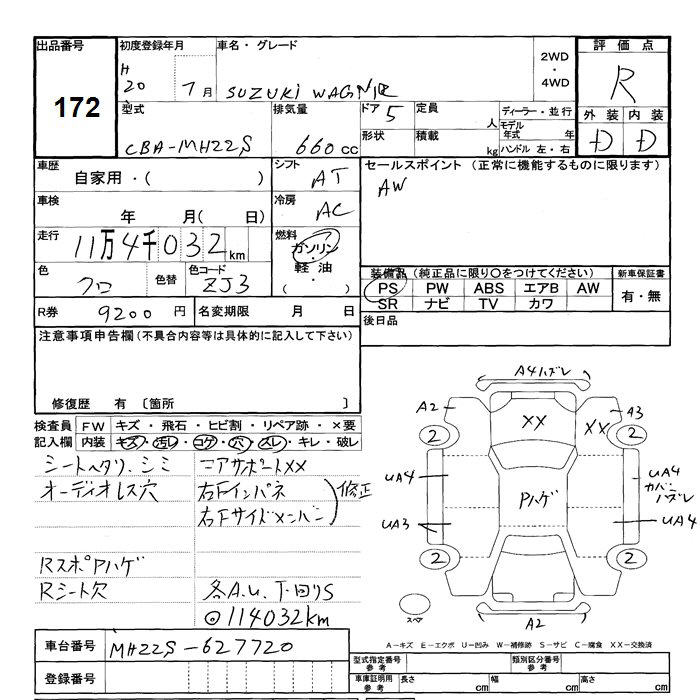 出品番号 初度登録年月 車名・グレード 2WD ・ 4WD 評価点
172 H 20 7月 SUZUKI WAGNR R
型式 排気量 ドア 5 定員 人 ディーラー・並行 外装 内装
CBA-MH22S 660cc 形状 積載 kg モデル年式 年 ハンドル 左・右 D D
車歴 シフト セールスポイント (正常に機能するものに限ります)
自家用・( ) AT AW
車検 年 月( 日) 冷房 AC
走行 11万4千032km 燃料 ガソリン・軽油・( )
色 クロ 色替 色コード ZJ3
装備品 (純正品に限り○をつけてください) 新車保証書
PS PW ABS エアB AW 有・無
SR ナビ TV カワ
R券 9200円 名変期限 月 日 後日品
注意事項申告欄 (不具合内容等は具体的に記入して下さい)
修復歴 有 〔箇所 〕
検査員記入欄 FW キズ・飛石・ヒビ割・リペア跡・×要
内装 キズ・汚レ・コゲ・穴・スレ・キレ・破レ
シートヘタリ、シミ コアサポートXX
オーディオレス穴 右Fインパネ 修正
右Fサイドメンバー
RスポPハゲ
Rシート欠 各A.U、下回りS
◎114032km
A4ハズレ
A2 XX XX A3
2 2
UA4 Pハゲ UA4 カバーハズレ
UA3 UA4
2 2
スペア A2
A-キズ E-エクボ U-凹み W-補修跡 S-サビ C-腐食 XX-交換済
車台番号 MH22S-627720
登録番号
型式指定番号 参考 類別区分番号 参考
車庫証明用 参考 長さ cm 幅 cm 高さ cm